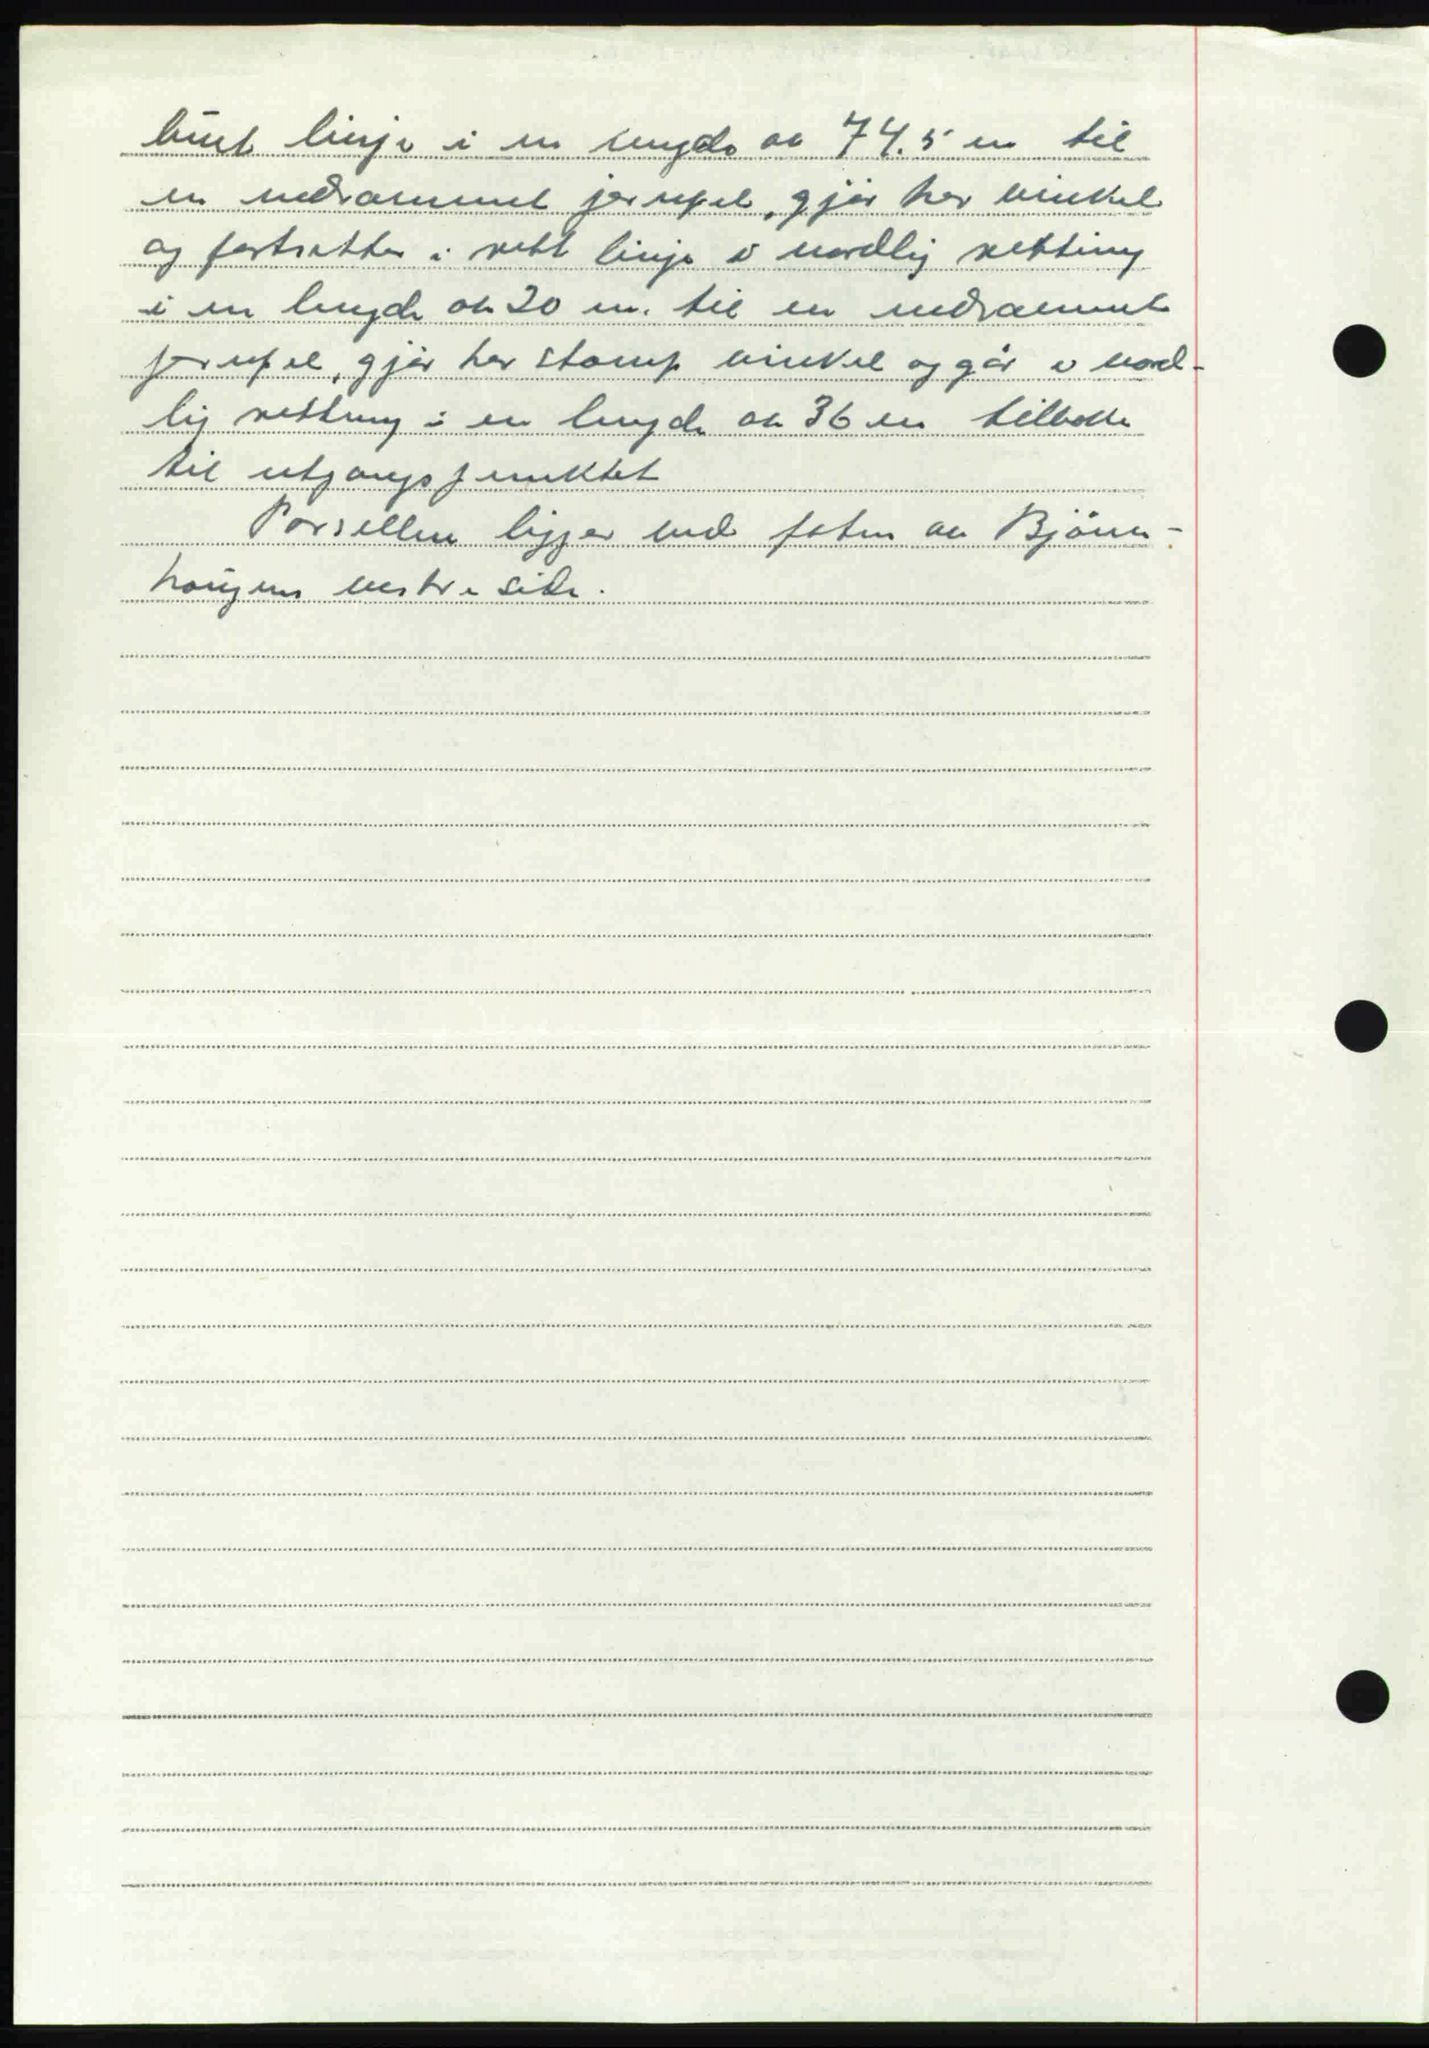 buet linje i en lengde av 74.5 m til
en nedrammet jernpel, gjør her vinkel
og fortsetter i rett linje i nordlig retting
i en lengde av 20 m. til en nedrammet
jernpel, gjør her stomp vinkel og går i nord-
lig retting i en lengde av 36 m tilbake
til utgangspunktet
Parsellen ligger ved foten av Bjönn-
haugens vestre side.